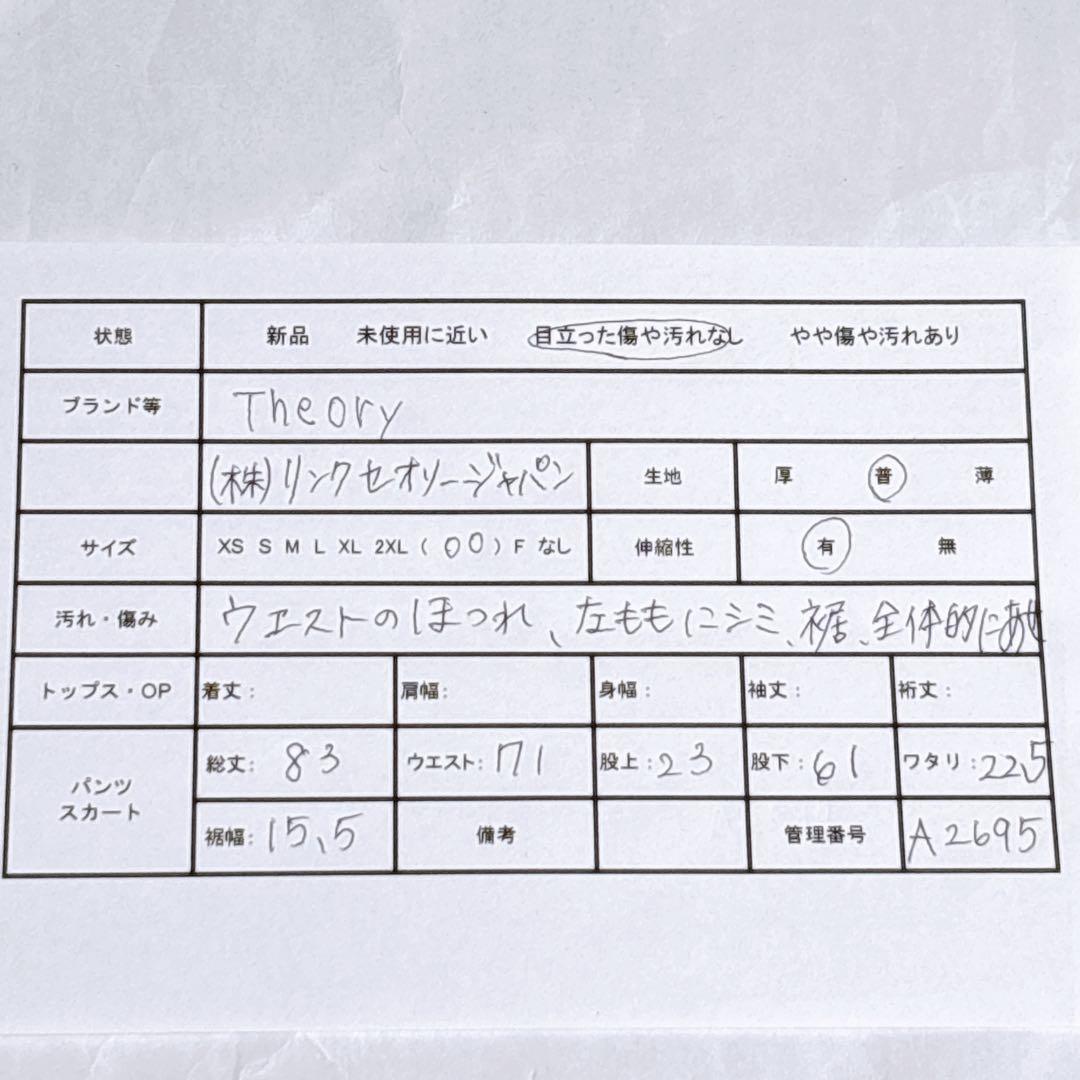 状態 新品 未使用に近い 目立った傷や汚れなし やや傷や汚れあり
ブランド等 Theory
(株)リンクセオリージャパン 生地 厚 普 薄
サイズ XS S M L XL 2XL ( 00 ) F なし 伸縮性 有 無
汚れ・傷み ウエストのほつれ、左ももにシミ、裾、全体的に
トップス・OP 着丈: 肩幅: 身幅: 袖丈: 裄丈:
パンツ スカート 総丈: 83 ウエスト: 71 股上: 23 股下: 61 ワタリ: 22.5
裾幅: 15.5 備考 管理番号 A2695